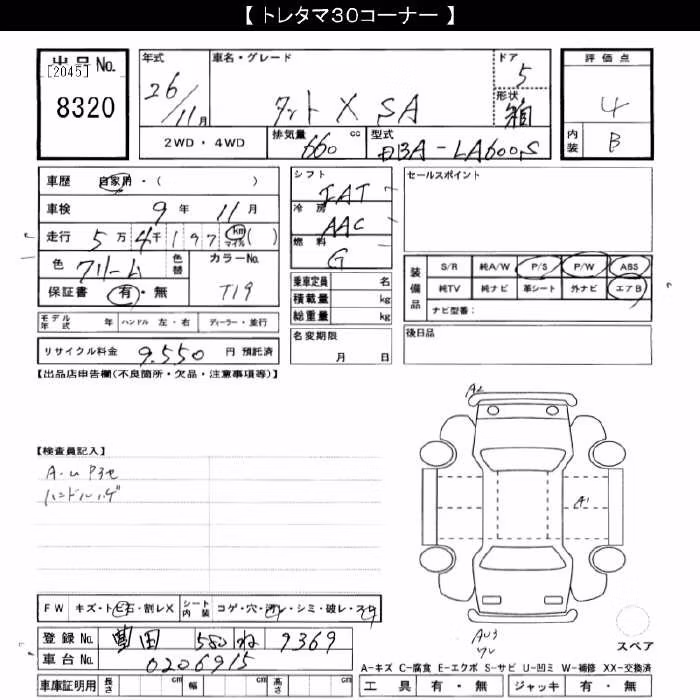 【 トレタマ30コーナー 】
出品No.
[2045]
8320
年式
26/11月
車名・グレード
タント X SA
ドア
5
形状
箱
評価点
4
内装
B
2WD・4WD
排気量
660 cc
型式
DBA-LA600S
車歴 自家用・( )
車検 9年 11月
走行 5万4千197 km マイル( )
色 クリーム 色替
カラーNo.
T19
保証書 有・無
モデル年式 年 ハンドル 左・右 ディーラー・並行
リサイクル料金 9,550 円 預託済
シフト
IAT
冷房
AAC
燃料
G
乗車定員 名
積載量 kg
総重量 kg
名変期限
月 日
セールスポイント
装備品
S/R 純A/W P/S P/W ABS
純TV 純ナビ 革シート 外ナビ エアB
ナビ型番：
後日品
【出品店申告欄(不良箇所・欠品・注意事項等)】
【検査員記入】
A・U P3セ
ハンドルハゲ
A2
A1
AU3
FW キズ・トビ石・割レX シート内装 コゲ・穴・汚レ・シミ・破レ・スレ
登録No. 豊田 580 ね 9369
車台No. 0206915
車庫証明用 長さ cm 幅 cm 高さ cm
スペア
A-キズ C-腐食 E-エクボ S-サビ U-凹ミ W-補修 XX-交換済
工具 有・無 ジャッキ 有・無